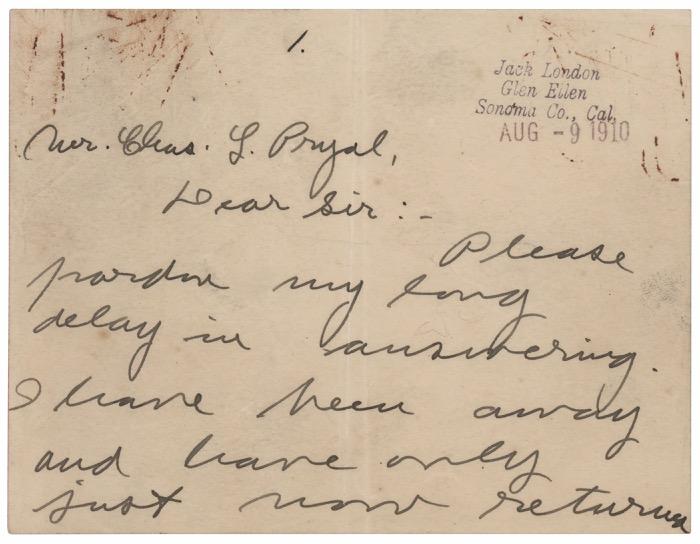 1.
Jack London
Glen Ellen
Sonoma Co., Cal.
AUG - 9 1910
Mr. Chas. L. Pryal,
Dear Sir:-
Please
pardon my long
delay in answering.
I have been away
and have only
just now returned